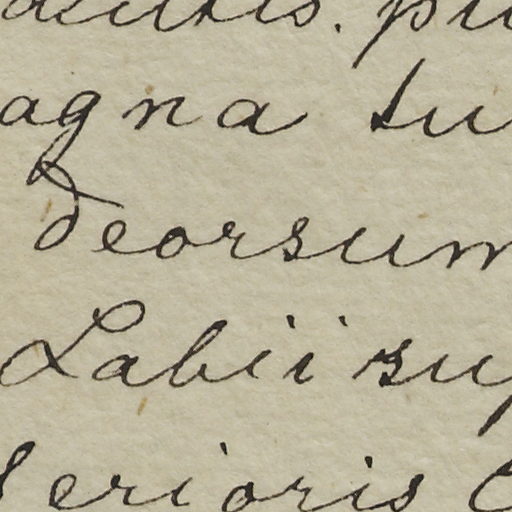 agna su
deorsum
Labii sup
erioris